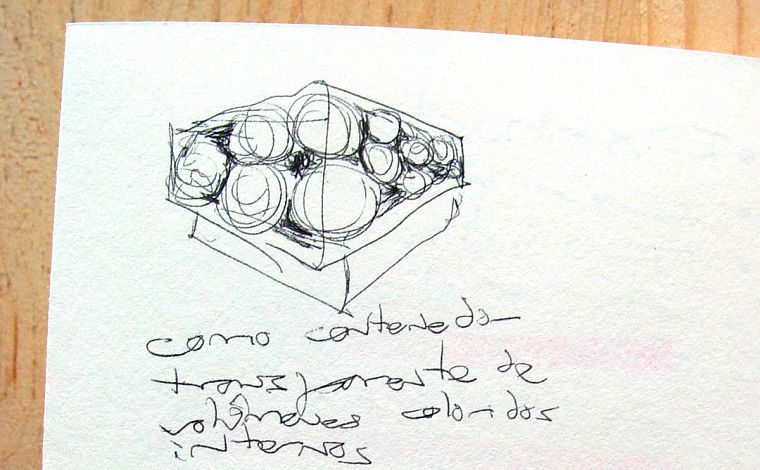 como contenedor
transparente de
volúmenes coloridos
internos